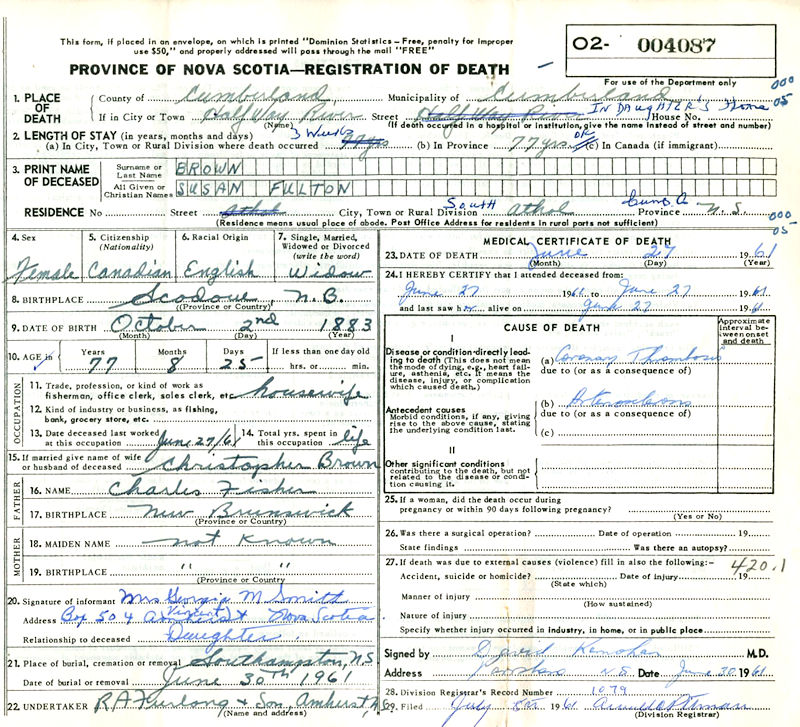 This form, if placed in an envelope, on which is printed "Dominion Statistics – Free, penalty for improper
use $50," and properly addressed will pass through the mail "FREE"
PROVINCE OF NOVA SCOTIA—REGISTRATION OF DEATH
O2- 004087
For use of the Department only
1. PLACE OF DEATH County of Cumberland Municipality of Cumberland 000
If in City or Town Half Way River Street Half Way River House No. IN DAUGHTER'S Home 05
(Name) (If death occurred in a hospital or institution, give name instead of street and number)
2. LENGTH OF STAY (in years, months and days) 3 Weeks
(a) In City, Town or Rural Division where death occurred 77yrs (b) In Province 77 yrs (c) In Canada (if immigrant)
3. PRINT NAME OF DECEASED Surname or Last Name BROWN
All Given or Christian Names SUSAN FULTON
RESIDENCE No Street Athol City, Town or Rural Division South Athol Province N.S. 000
(Residence means usual place of abode. Post Office Address for residents in rural parts not sufficient) 05-
4. Sex 5. Citizenship (Nationality) 6. Racial Origin 7. Single, Married, Widowed or Divorced (write the word)
Female Canadian English Widow
8. BIRTHPLACE N.B.
(Province or Country)
9. DATE OF BIRTH October 2nd 1883
(Month) (Day) (Year)
10. AGE in Years Months Days If less than one day old
77 8 25 hrs. or min.
OCCUPATION
11. Trade, profession, or kind of work as fisherman, office clerk, sales clerk, etc. housewife
12. Kind of industry or business, as fishing, bank, grocery store, etc.
13. Date deceased last worked at this occupation June 27/61 14. Total yrs. spent in this occupation life
15. If married give name of wife or husband of deceased Christopher Brown
FATHER
16. NAME Charles Fisher
17. BIRTHPLACE New Brunswick
(Province or Country)
MOTHER
18. MAIDEN NAME not Known
19. BIRTHPLACE " "
(Province or Country)
20. Signature of informant Mrs Georgia M Smith
Address Box 504 Amherst Nova Scotia
Relationship to deceased Daughter
21. Place of burial, cremation or removal Southampton, NS
Date of burial or removal June 30th 1961
22. UNDERTAKER R A Furlong & Son, Amherst, NS
(Name and address)
MEDICAL CERTIFICATE OF DEATH
23. DATE OF DEATH June 27 1961
(Month) (Day) (Year)
24. I HEREBY CERTIFY that I attended deceased from:
June 27 1961 to June 27 1961
and last saw h er alive on June 27 1961
CAUSE OF DEATH
Approximate interval between onset and death
I
Disease or condition directly leading to death (This does not mean the mode of dying, e.g., heart failure, asthenia, etc. It means the disease, injury, or complication which caused death.)
(a) Coronary Thrombosis
due to (or as a consequence of)
Antecedent causes
Morbid conditions, if any, giving rise to the above cause, stating the underlying condition last.
(b)
due to (or as a consequence of)
(c)
II
Other significant conditions
contributing to the death, but not related to the disease or condition causing it.
25. If a woman, did the death occur during pregnancy or within 90 days following pregnancy?
(Yes or No)
26. Was there a surgical operation? Date of operation 19
State findings Was there an autopsy?
27. If death was due to external causes (violence) fill in also the following:– 420.1
Accident, suicide or homicide? Date of injury 19
(State which)
Manner of injury
(How sustained)
Nature of injury
Specify whether injury occurred in industry, in home, or in public place
Signed by M.D.
Address N.S. Date June 30 1961
28. Division Registrar's Record Number 1079
29. Filed July 1961
(Division Registrar)